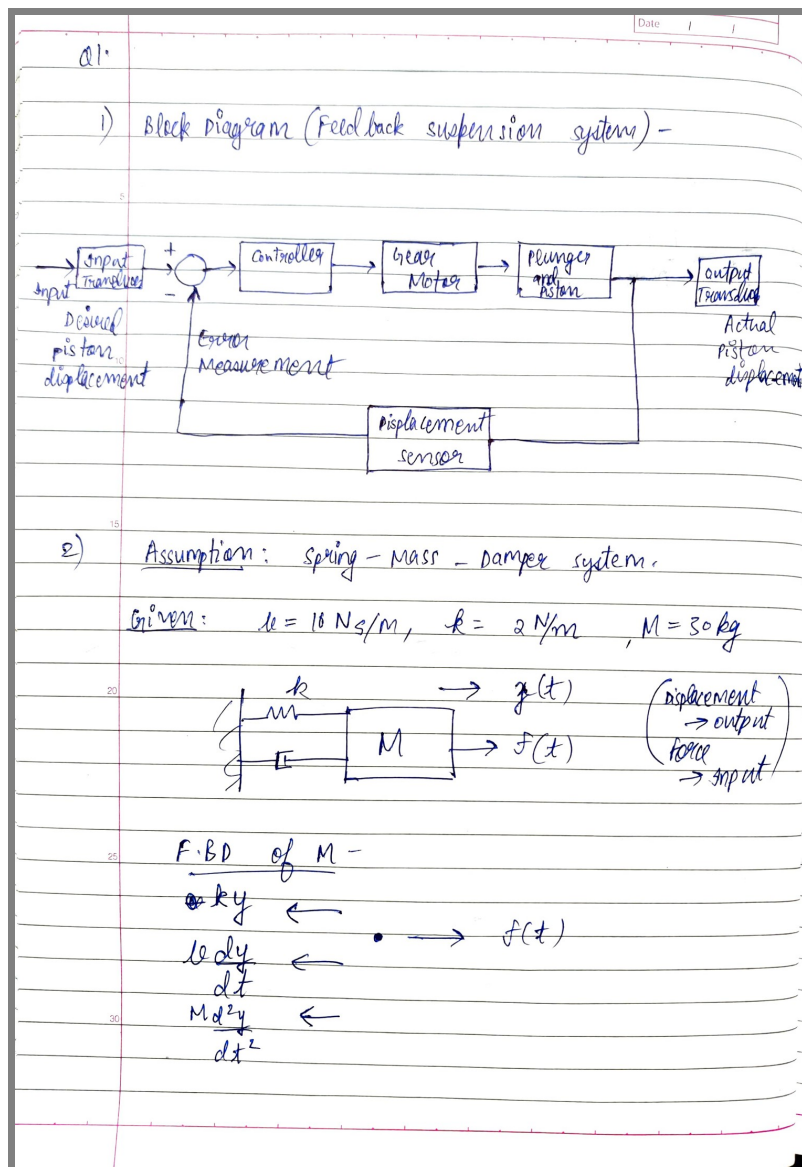 Date / /
Q1.
1) Block Diagram (Feedback suspension system) -
5
Input Transducer
+
-
Controller
Gear Motor
Plunger and Piston
Output
Input
Desired piston displacement
Error Measurement
Actual Piston displacement
10
Displacement sensor
15
2) Assumption: Spring - Mass - Damper system.
Given: = 10 Ns/m, k = 2 N/m , M = 30 kg
20
k
→ y(t)
M
→ f(t)
(Displacement
→ output
Force
→ Input)
25
F.B.D of M -
ky ←
• → f(t)
dy/dt ←
30
M d²y/dt² ←